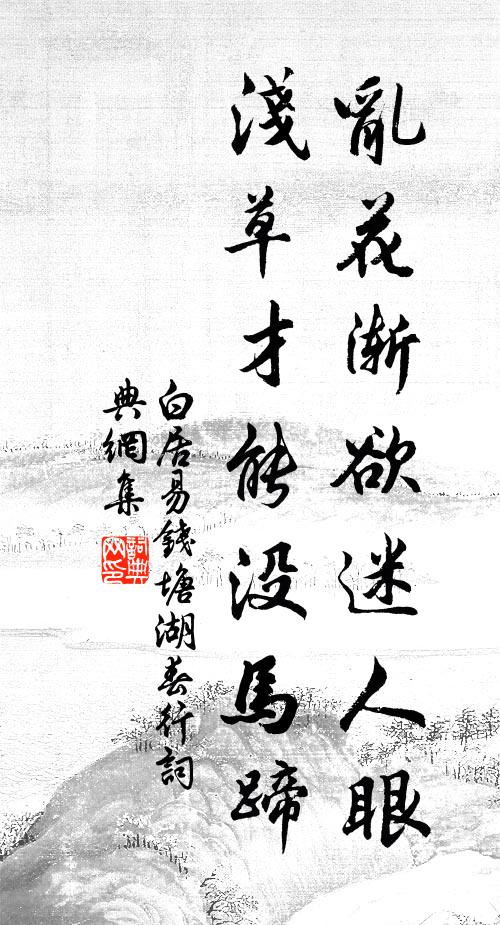 亂花漸欲迷人眼
淺草才能没馬蹄
白居易錢塘湖春行詞
典網集
詞典
网印